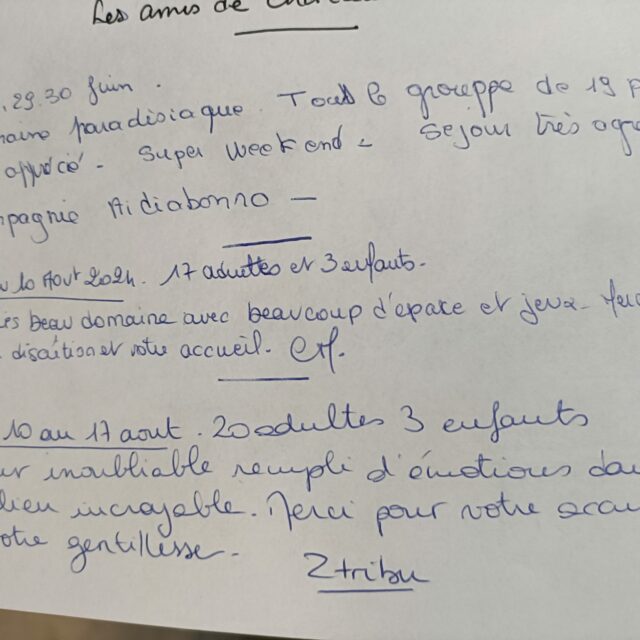 Les amis de
29.30 Juin.
paradisiaque. Tout le grouppe de 19 p
apprécié - Super Week end - Sejour très agr
pagnie
10 Aout 2024. 17 adultes et 3 enfants.
beau domaine avec beaucoup d'epace et jeux -
discrition et votre accueil.
10 au 17 aout. 20 adultes 3 enfants
ur inoubliable rempli d'émotions da
lieu incroyable. Merci pour votre accu
otre gentillesse.
Ztribu